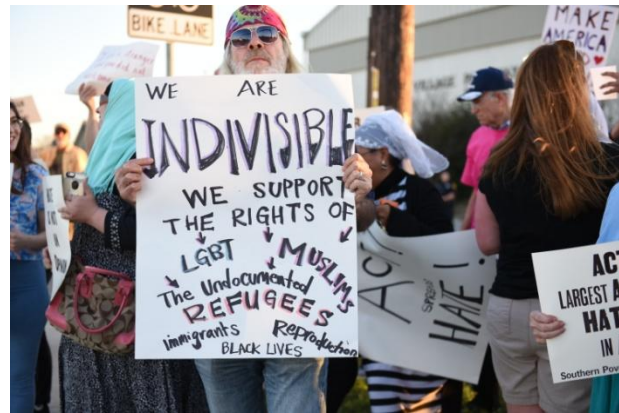 BIKE LANE
MAKE
AMERICA
WE ARE
INDIVISIBLE
WE SUPPORT
THE RIGHTS OF
LGBT
MUSLIMS
The Undocumented
REFUGEES
immigrants
Reproduction
BLACK LIVES
HATE!
ACT
LARGEST
HAT
IN
Southern Pov